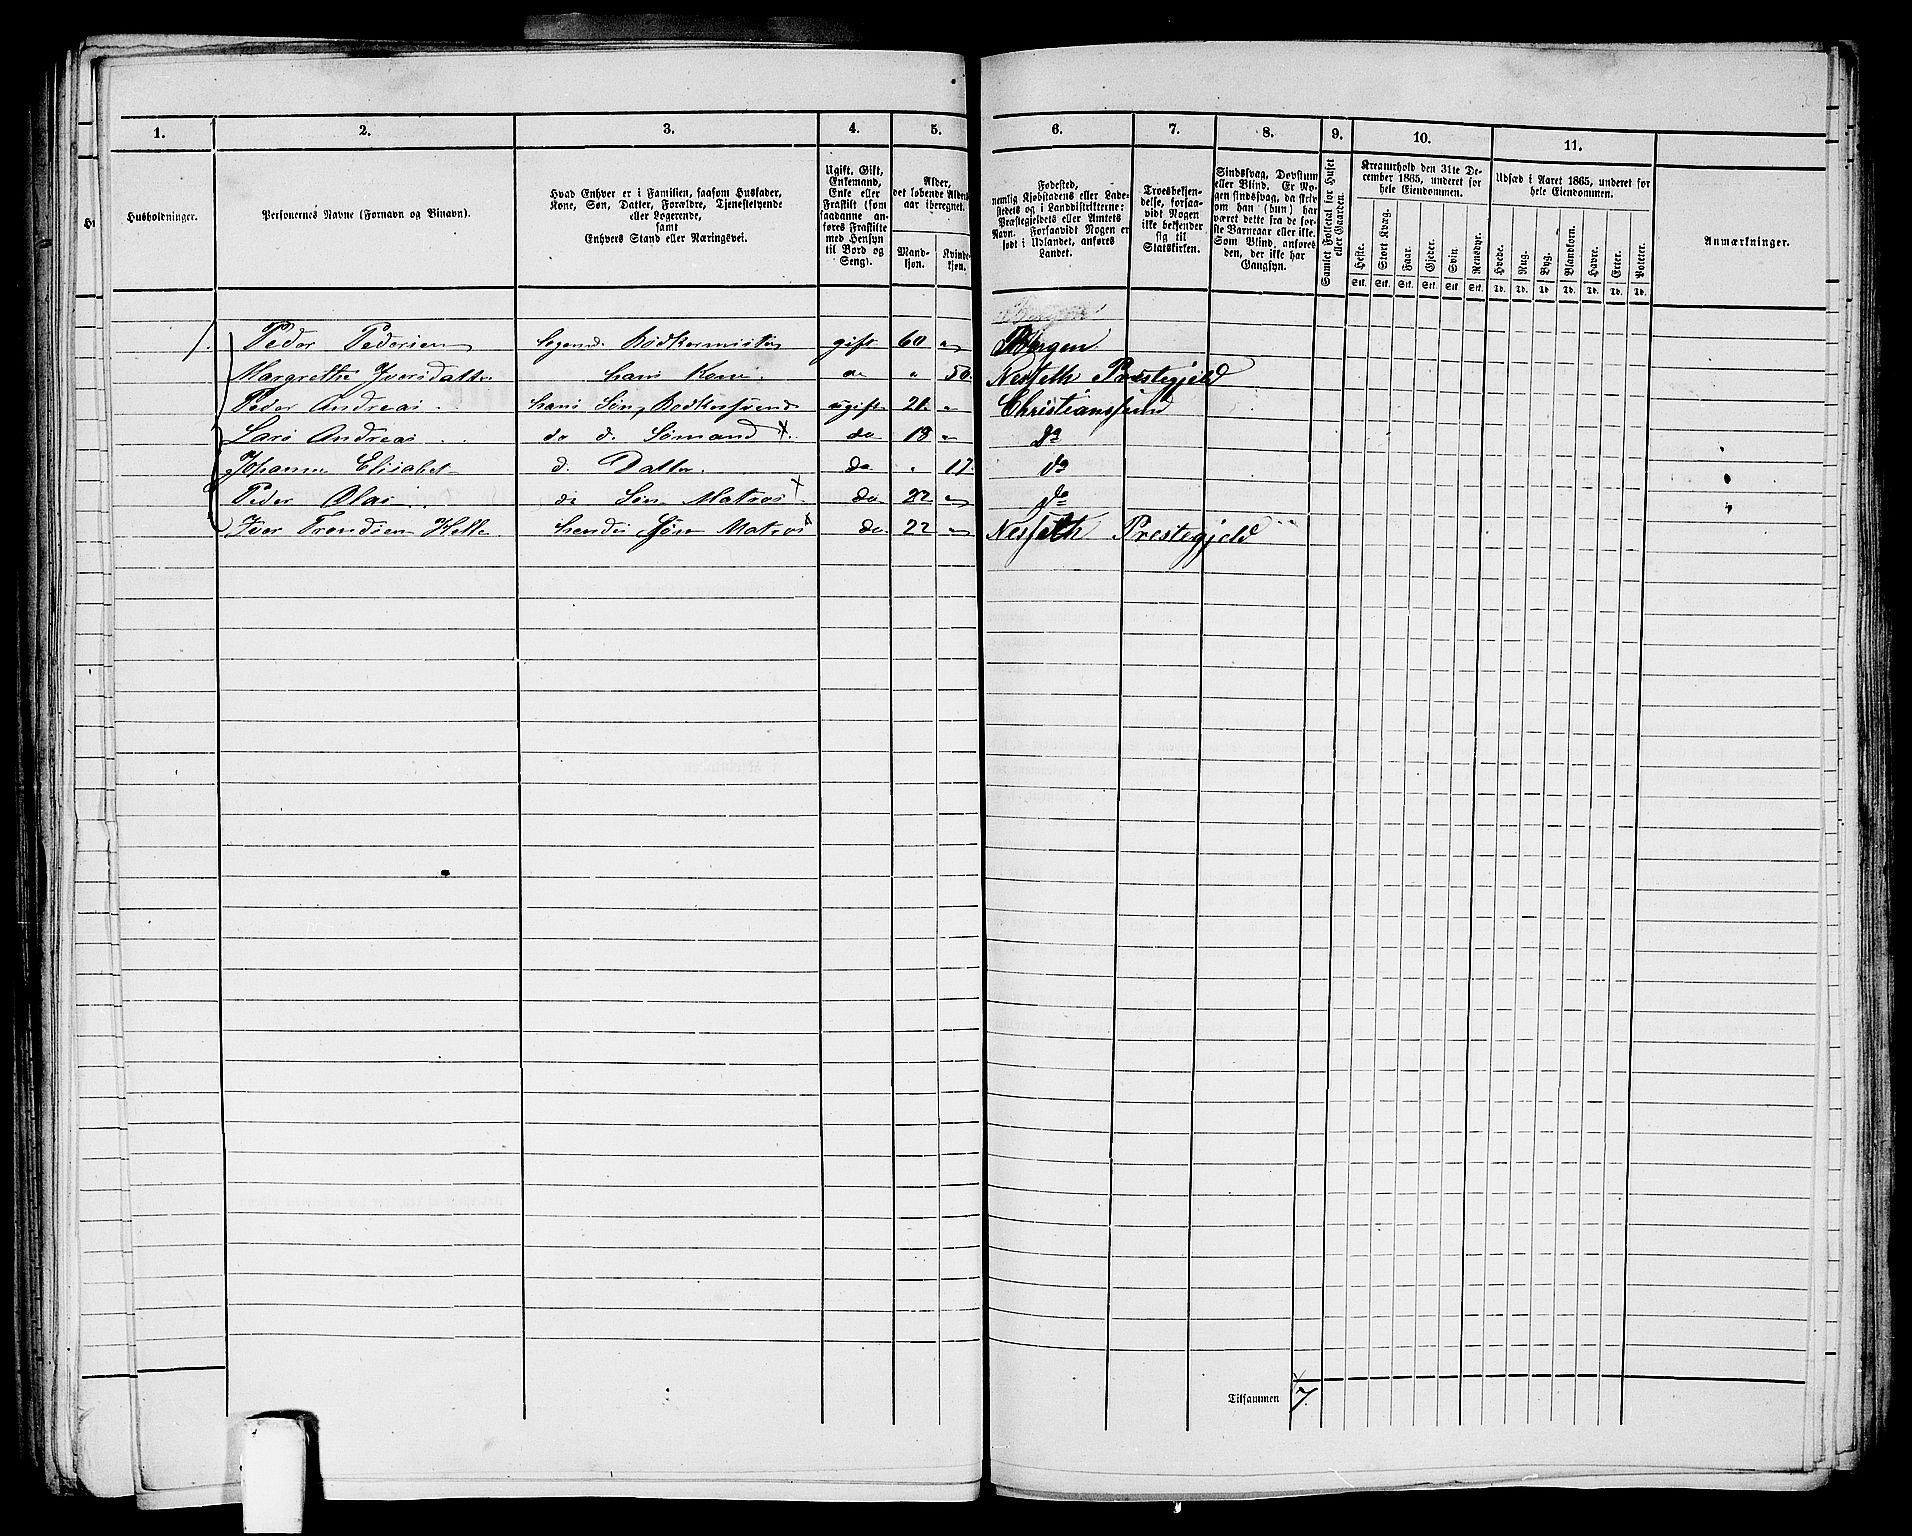 1. 2. 3. 4. 5. 6. 7. 8. 9. 10. 11.
Husholdninger.
Personernes Navne (Fornavn og Binavn).
Hvad Enhver er i Familien, saasom Husfader,
Kone, Søn, Datter, Forældre, Tjenestetyende
eller Logerende,
samt
Enhvers Stand eller Næringsvei.
Ugift, Gift,
Enkemand,
Enke eller
Fraskilt (som
saadanne an-
føres Fraskilte
med Hensyn
til Bord og
Seng).
Alder,
det løbende Alders-
aar iberegnet.
Mand-
kjøn.
Kvinde-
kjøn.
Fødested,
nemlig Kjøbstadens eller Lade-
stedets og i Landdistrikterne:
Præstegjeldets eller Amtets
Navn. Forsaavidt Nogen er
født i Udlandet, anføres
Landet.
Troesbekjen-
delse, forsaa-
vidt Nogen
ikke bekjender
sig til
Statskirken.
Sindssvag, Døvstum
eller Blind. Er No-
gen sindssvag, da skriv
om han (hun) har
været dette fra de før-
ste Barneaar eller ikke.
Som Blind, anføres
den, der ikke har
Gangsyn.
Samlet Folketal for Huset
eller Gaarden.
Kreaturhold den 31te De-
cember 1865, underet for
hele Eiendommen.
Heste. Stort Kvæg. Faar. Gjeder. Svin. Rensdyr.
Stk. Stk. Stk. Stk. Stk. Stk.
Udsæd i Aaret 1865, underet for
hele Eiendommen.
Hvede. Rug. Byg. Blandkorn. Havre. Erter. Poteter.
Td. Td. Td. Td. Td. Td. Td.
Anmærkninger.
1. Peder Pedersen Bødkermester gift 60 " Bergen
Margrethe Iversdatter hans Kone. do " 50. Nesseth Prestegjeld
Peder Andreas hans Søn, Bødkersvend ugift 21 " Christianssund
Lars Andreas do d. Sømand X. do 18 " do
Johanne Elisabet d. Datter do " 17. do
Peder Olai do Søn Matros X do 22 " do
Iver Trondsen hendes Søn Matros X do 22 " Nesseth Prestegjeld
Tilsammen 7.